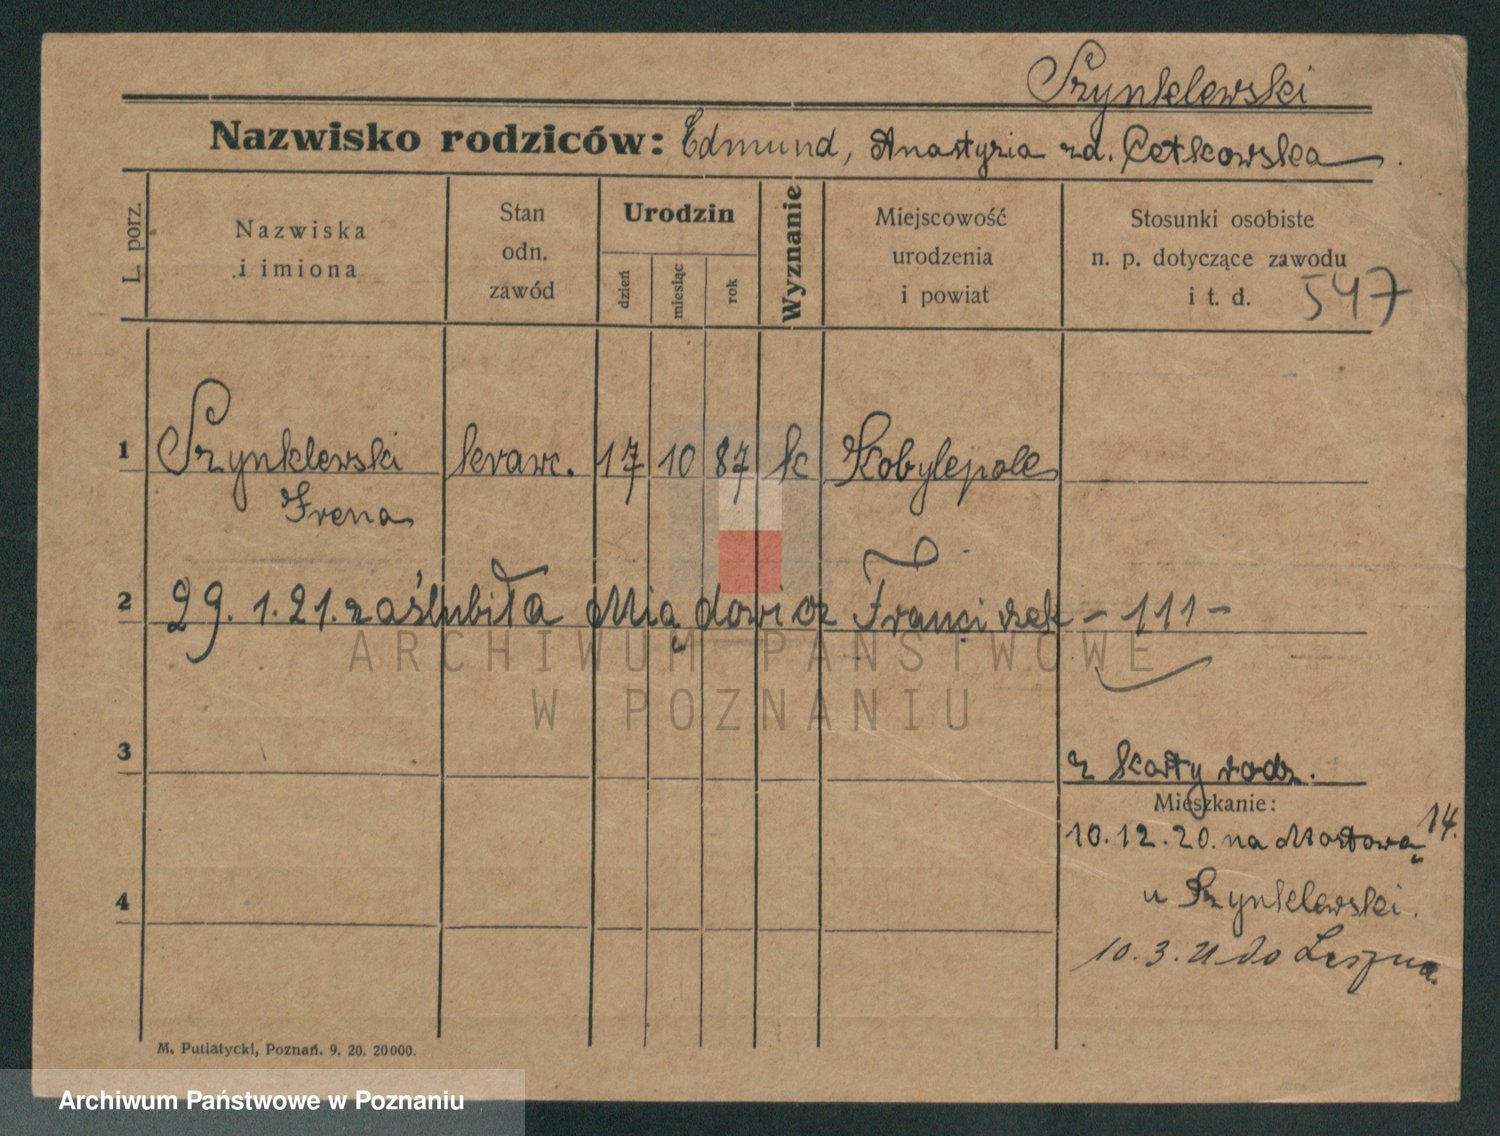 Szynklewski
Nazwisko rodziców: Edmund, Anastyzia zd. Cetkowska.
L. porz.
Nazwiska
i imiona
Stan
odn.
zawód
Urodzin
dzień
miesiąc
rok
Wyznanie
Miejscowość
urodzenia
i powiat
Stosunki osobiste
n. p. dotyczące zawodu
i t. d. 547
1 Szynklewski krawc. 17 10 87 k Kobylepole
Irena
2 29. 1. 21. zaślubiła Miądowicz Franciszek - 111 -
ARCHIWUM PAŃSTWOWE
W POZNANIU
3
z karty rodz.
Mieszkanie:
10.12.20. na Mostową 14.
4
u Szynklewski.
10. 3. 21 do Leszna.
M. Putiatycki, Poznań. 9. 20. 20000.
Archiwum Państwowe w Poznaniu